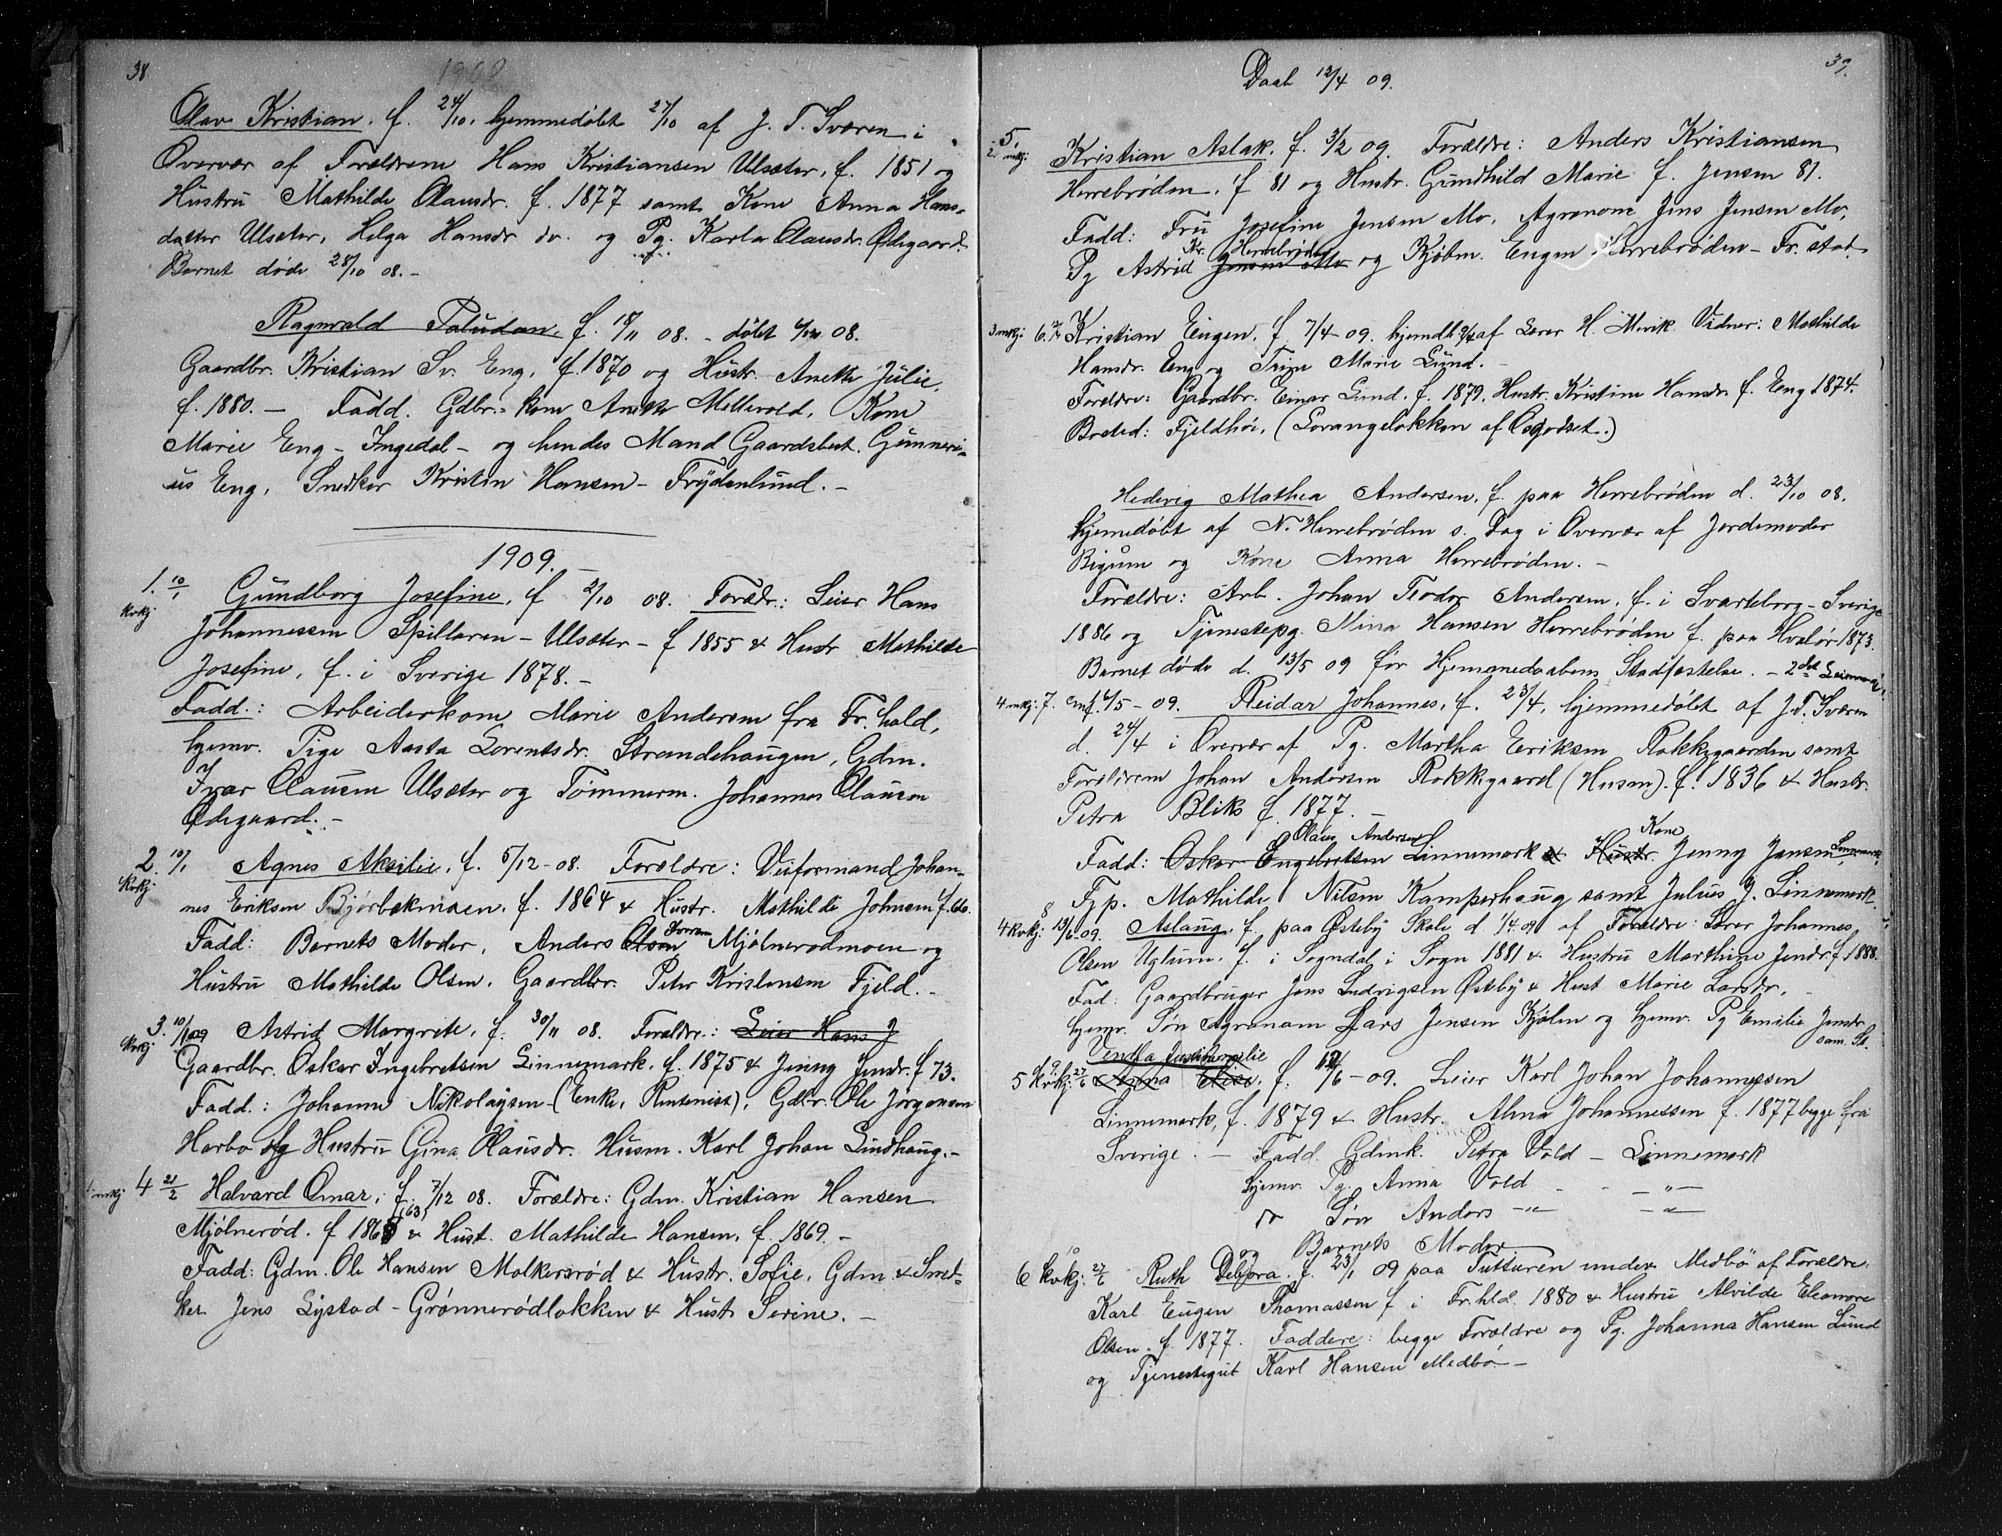 38.
1908
Olav Kristian, f. 24/10, hjemmedøbt 27/10 af J. T. Sværen i
Overvær af Forældrene Hans Kristiansen Ulsæter, f. 1851 og
Hustru Mathilde Olausdr. f. 1877 samt Kone Anna Hans-
datter Ulsæter, Helga Hansdr do. og Pg. Karla Olausdr. Ødegaard.
Barnet døde 28/10 08. -
Ragnvald Paludan, f. 18/11 08. - døbt 08.
Gaardbr. Kristian Sv. Eng, f. 1870 og Hustr. Anette Julie,
f. 1880. - Fadd. Gdbr.- kone Anette Mellevold, Kone
Marie Eng - Ingedal - og hendes Mand Gaardsbest. Gunneri-
us Eng, Snedker Kristin Hansen - Frydenlund. -
1909. -
1. 10/1 Gundborg Josefine, f 2/10 08. Forældr.: Leier Hans
kvkj
Johannessen Spillaren - Ulsæter - f 1855 & Hustr Mathilde
Josefine, f. i Sverige 1878. -
Fadd.: Arbeiderkone Marie Andersen fra Fr.hald,
hjemv. Pige Aasta Lorentsdr. Strandehaugen, Gdm.
Ivar Clausen Ulsæter og Tømmerm. Johannes Clausen
Ødegaard. -
2. 10/1 Agnes Aksilie, f. 5/12 - 08. Forældre: Veiformand Johan-
kvkj
nes Eriksen Bjørbekmoen, f. 1864 & Hustr. Mathilde Johnsen f. 66.
Iversen
Fadd: Barnets Moder, Anders Olsen Mjølnerødmoen og
Hustru Mathilde Olsen, Gaardbr. Peter Kristensen Fjeld. -
3. 10/1 09 Astrid Margrete, f. 30/11 08. Forældre: Leier Hans J
kvkj
Gaardbr. Oskar Ingebretsen Linnemark, f. 1875 & Jenny Jendr. f 73.
Fadd.: Johanne Nikolaysen (Enke, Rentenist), Gdbr. Ole Jørgensen
Harbo og Hustru Gina Olausdr. Husm. Karl Johan Lindhaug. -
mkj 4 21/2 Halvard Omar, f. 7/12 08. Forældre: Gdm. Kristian Hansen
(63)
Mjølnerød, f 1865 & Hust. Mathilde Hansen, f. 1869. -
Fadd: Gdm. Ole Hansen Molkersrød & Hustr. Sofie, Gdm. & Sned-
ker Jens Lystad - Grønnerødløkken & Hustr Serine. -
39.
Daab 12/4 09.
5.
2 mkj. Kristian Aslak, f. 3/2 09. Forældre: Anders Kristiansen
Herrebrøden, f 81 og Hustr. Gundhild Marie f. Jensen 81.
Fadd: Fru Josefine Jensen Mo, Agronom Jens Jensen Mo,
Kr. Herrebrøden
Pg Astrid Jensen Mo og Kjøbm. Eugen Herrebrøden - Fr.stad.
3 mkj 6. Kristian Eugen, f 7/4 - 09. hjemdbt af Lærer H. Mevik. Vidner: Mathilde
Hansdr. Eng og Trine Marie Lund. -
Forældre: Gaardbr. Einar Lund, f. 1879. Hustr. Kristine Hansdr. f. Eng 1874.
Bosted: Fjeldhøi, (Lorangeløkken af Osgodset.)
Hedevig Mathea Andersen, f. paa Herrebrøden d. 23/10 08.
hjemedøbt af N. Herrebrøden s. Dag i Overvær af Jordemoder
Bigum og Kone Anna Herrebrøden. -
Forældre: Arb. Johan Teodor Andersen, f. i Svarteborg - Sverige
1886 og Tjenestepg. Mina Hansen Herrebrøden f. paa Hvaler 1873.
Barnet døde d. 13/5 09 før Hjemmedaabens Stadfæstelse. -
4 mkj. 7. 5 - 09. Reidar Johannes, f. 23/4, hjemmedøbt af J. T. Sværen
d. 24/4 i Overvær af Pg. Martha Eriksen Rokkegaarden samt
Forældrene Johan Andersen Rokkgaard (Husm). f. 1836 & Hustr.
Petra Bliks f. 1877. -
Olaus Andersen Kone
Fadd: Oskar Engebretsen Linnemark & Hustr. Jenny Jensen Linnemark
Tjp. Mathilde Nilsen Kamperhaug samt Julius J. Linnemark.
8
4 kvkj: 13/6 09. Aslaug, f. paa Østeby Skole d 1/4 09 af Forældre: Lærer Johannes
Olsen Uglum, f. i Sogndal i Sogn 1881 & Hustru Marthine Jendr f. 1888.
Fad: Gaardbruger Jens Ludvigsen Østeby & Hust Marie Larsdr,
hjemv. Søn Agronom Lars Jensen Kjølen og hjemv. Pg Emilie Jensdr
sam. St.
9.
5 kvkj: 27/6 f. 12/6 - 09. Leier Karl Johan Johannessen
Linnemark, f. 1879 & Hustr. Alma Johannessen f. 1877 begge fra
Sverige. - Fadd. Gdmk. Petra Vold - Linnemark
hjemv. Pg. Anna Vold - " -
do Søn Anders - " - - " -
og Barnets Moder.
6 kvkj: 27/6 Ruth Debora, f. 23/1 09 paa Tutturen under Medbø af Forældre
Karl Eugen Thomassen f i Fr.hld. 1880 & Hustru Alvilde Eleonore
Olsen. f. 1877. Faddere: begge Forældre og Pg. Johanna Hansen Lund
og Tjenestegut Karl Hansen Medbø -